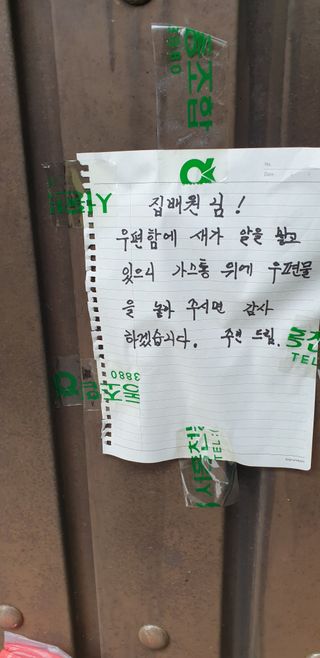 동조합
3880
No.
Date
집배원 님!
우편함에 새가 알을 낳고
있으니 가스통 위에 우편물
을 놓아 주시면 감사
하겠습니다. 주민 드림.
TEL
3880
동조
TEL:(